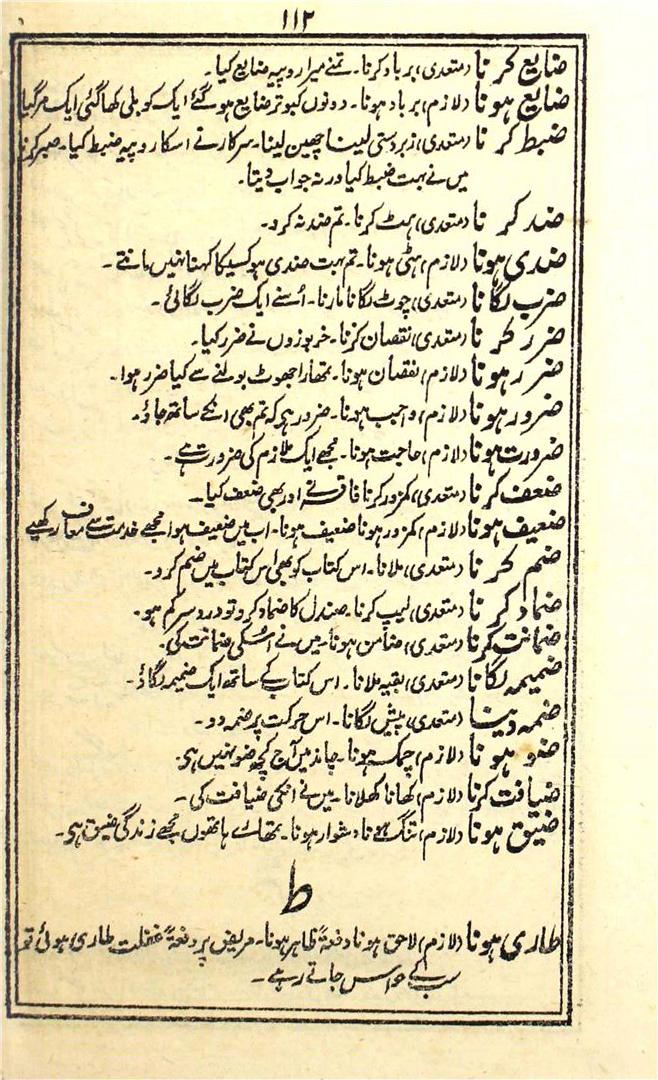 ۱۱۲
ضایع کرنا (متعدی) برباد کرنا۔ تمنے میرا روپیہ ضایع کیا۔
ضایع ہونا (لازم) برباد ہونا۔ دونوں کبوتر ضایع ہو گئے ایک کو بلی کھا گئی ایک مر گیا
ضبط کرنا (متعدی) زبردستی لینا چھین لینا۔ سرکار نے اسکا روپیہ ضبط کیا۔ صبر کرنا
میں نے بہت ضبط کیا ورنہ جواب دیتا۔
ضد کرنا (متعدی) ہٹ کرنا۔ تم ضد نہ کرو۔
ضدی ہونا (لازم) ہٹی ہونا۔ تم بہت ضدی ہو کسیکا کہنا نہیں مانتے۔
ضرب لگانا (متعدی) چوٹ لگانا مارنا۔ اُسنے ایک ضرب لگائی۔
ضرر کرنا (متعدی) نقصان کرنا۔ خربوزوں نے ضرر کیا۔
ضرر ہونا (لازم) نقصان ہونا۔ تمھارا جھوٹ بولنے سے کیا ضرر ہوا۔
ضرور ہونا (لازم) واجب ہونا۔ ضرور ہی کہ تم بھی انکے ساتھ جاؤ۔
ضرورت ہونا (لازم) حاجت ہونا۔ مجھے ایک ملازم کی ضرورت ہے۔
ضعف کرنا (متعدی) کمزور کرنا فاقہ نے اور بھی ضعف کیا۔
ضعیف ہونا (لازم) کمزور ہونا ضعیف ہونا۔ اب میں ضعیف ہوا مجھے خدمت سے معاف رکھیے
ضم کرنا (متعدی) ملانا۔ اس کتاب کو بھی اُس کتاب میں ضم کرو۔
ضماد کرنا (متعدی) لیپ کرنا۔ صندل کا ضماد کرو تو درد سر کم ہو۔
ضمانت کرنا (متعدی) ضامن ہونا۔ میں نے اُسکی ضمانت کی۔
ضمیمہ لگانا (متعدی) بقیہ ملانا۔ اس کتاب کے ساتھ ایک ضمیمہ لگاؤ۔
ضمہ دینا (متعدی) پیش لگانا۔ اس حرکت پر ضمہ دو۔
ضو ہونا (لازم) چمک ہونا۔ چاند میں آج کچھ ضو نہیں ہی۔
ضیافت کرنا (لازم) کھانا کھلانا۔ میں نے انکی ضیافت کی۔
ضیق ہونا (لازم) تنگ ہونا دشوار ہونا۔ تمھارے ہاتھوں مجھے زندگی ضیق ہی۔
ط
طاری ہونا (لازم) لاحق ہونا دفعۃً ظاہر ہونا۔ مریض پر دفعۃً غفلت طاری ہوئی تم
سب کے حواس جاتے رہے۔